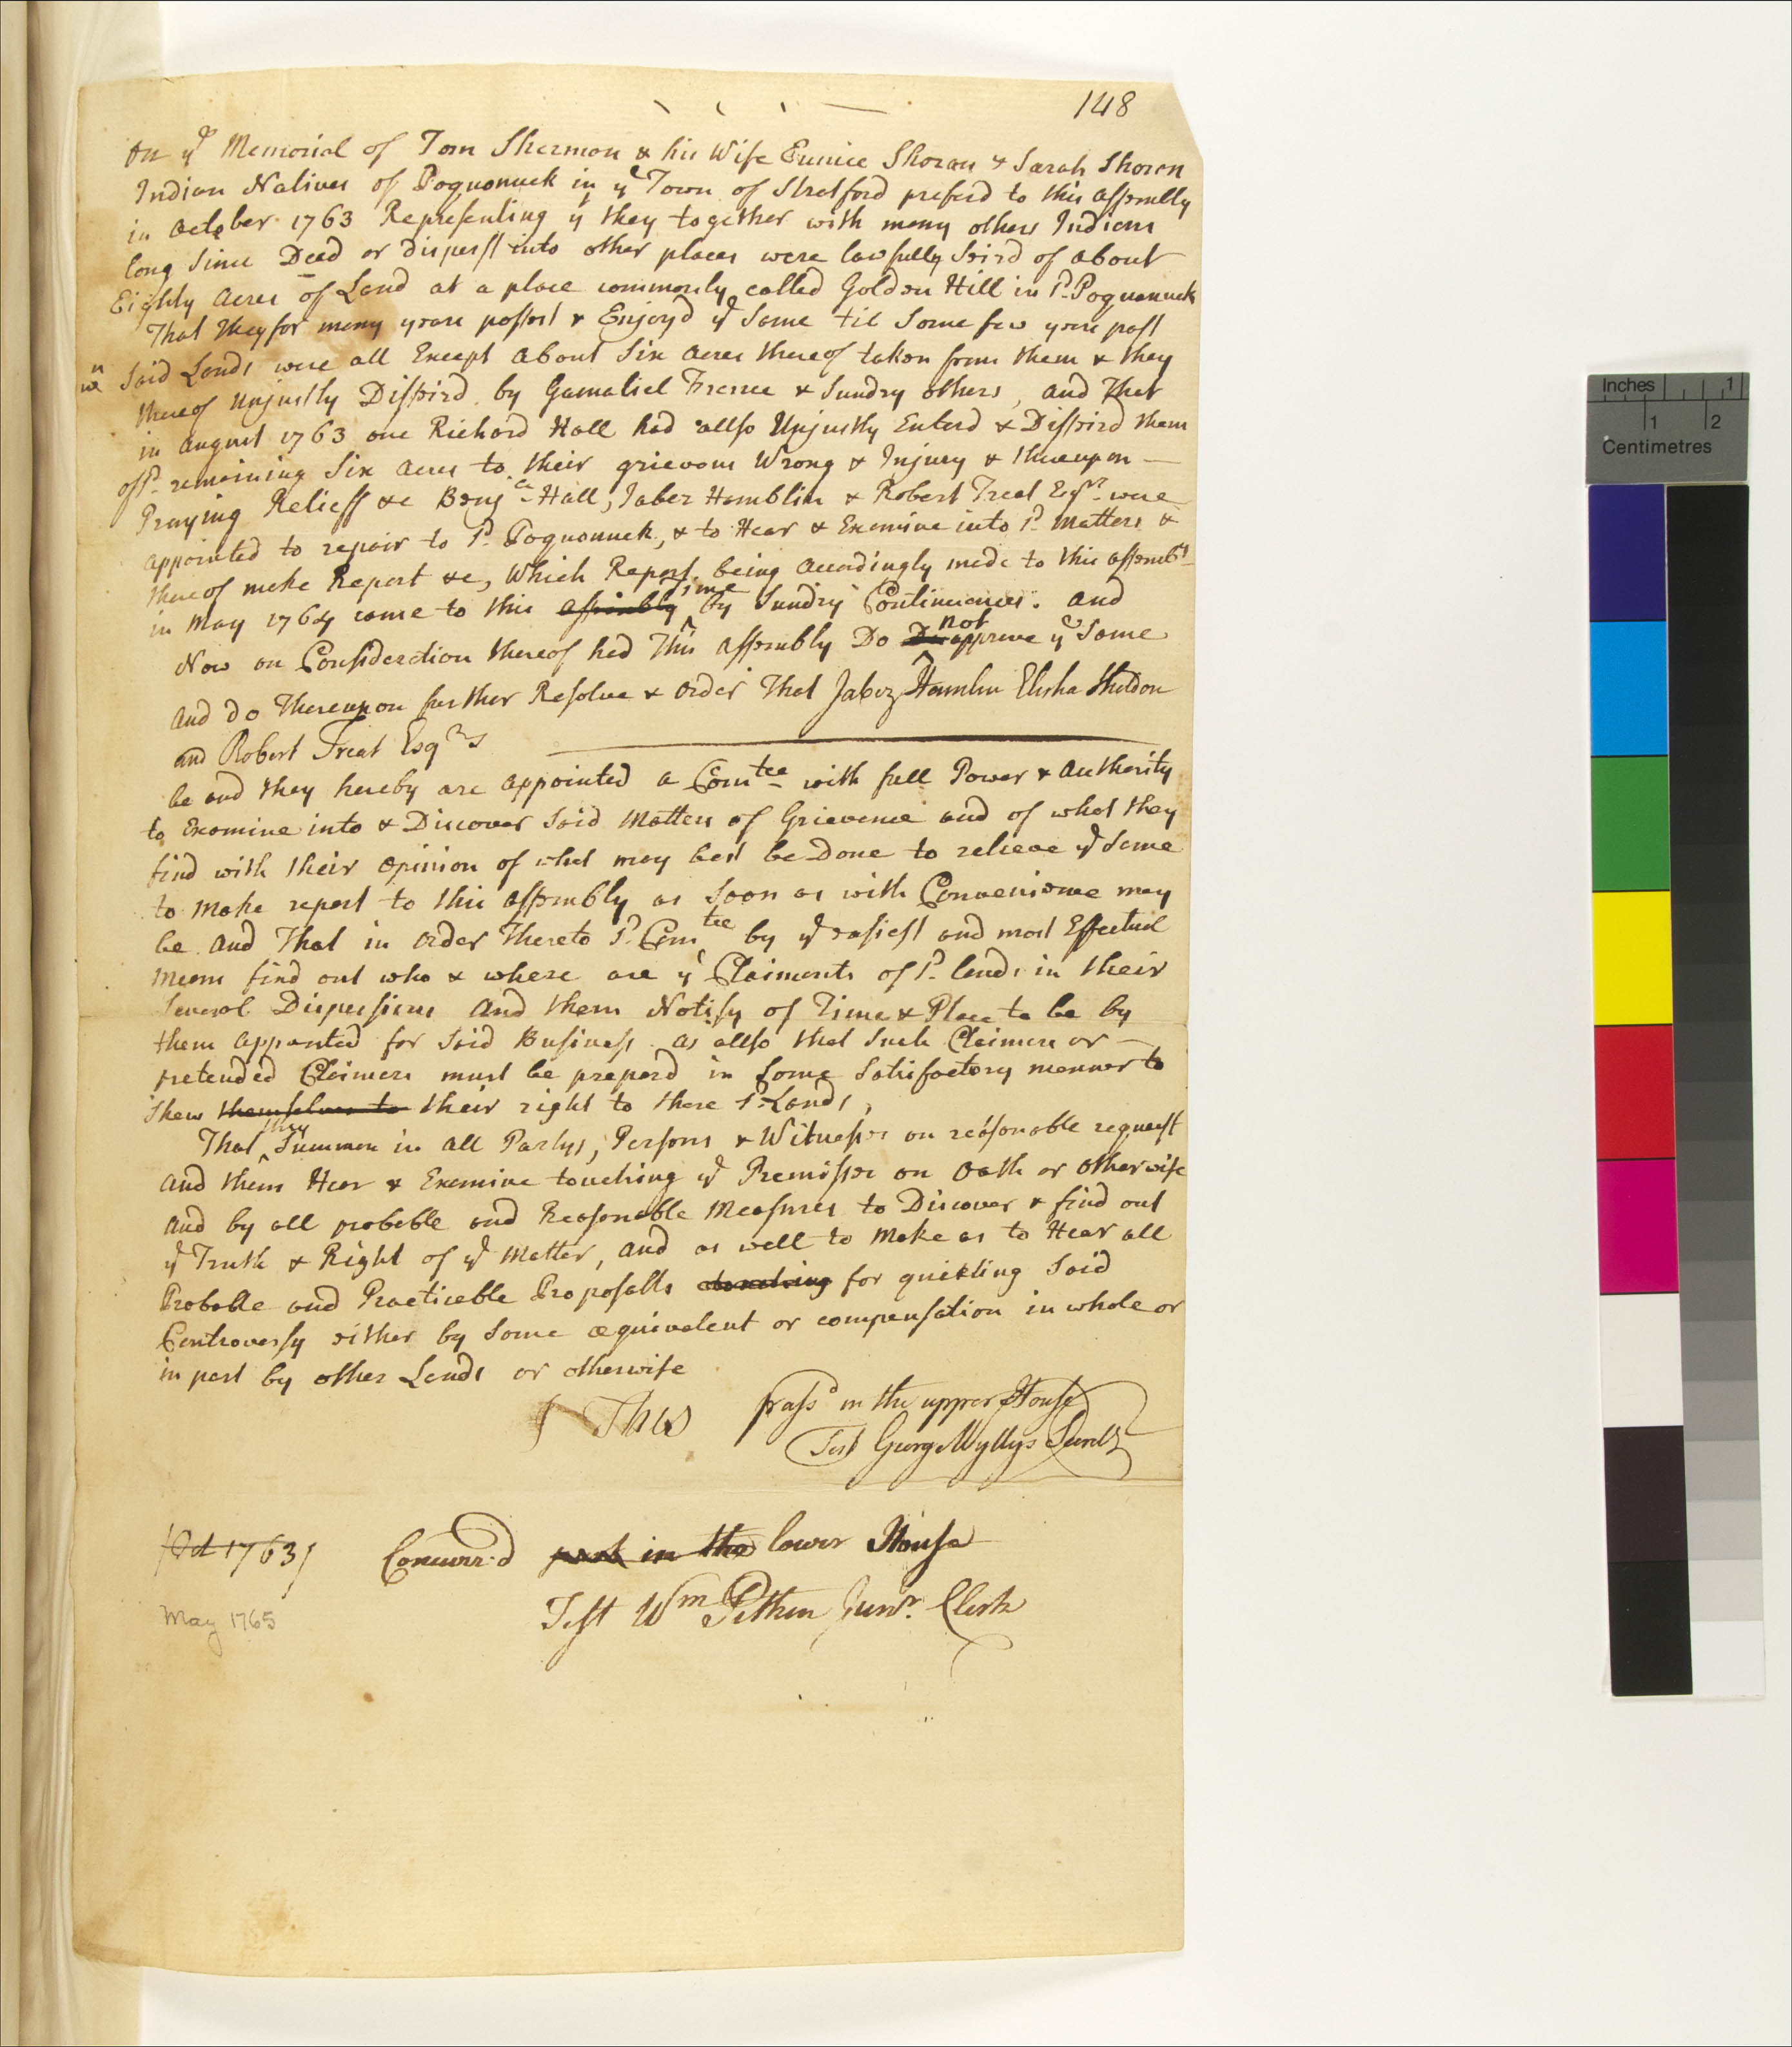 148
On ye Memorial of Tom Shermon & his Wife Eunice Shoran & Sarah Shoran
Indian Natives of Poquonuck in ye Town of Stratford preferd to this Assembly
in October 1763 Representing yt they together with many others Indians
long Since Dead or disperst into other places were lawfully Seizd of about
Eighty Acres of Land at a place commonly called Golden Hill in sd. Poquonuck
That they for many years possest & Enjoyd ye Same til Some few years past
wn Said Lands were all Except About Six Acres thereof taken from them & they
thereof Unjustly Disseizd by Gamaliel French & Sundry others, and That
in August 1763 one Richard Hall had allso Unjustly Enterd & Disseizd them
of sd. remaining Six Acres to their grievous Wrong & Injury & thereupon —
Praying Relieff &c Benja. Hall, Jabez Hamblin & Robert Treat Esqrs. were
appointed to repair to sd. Poquonuck, & to Hear & Examine into sd. Matters &
thereof make Report &c, Which Report being accordingly made to this Assembly
in May 1764 came to this Assembly time by Sundry Continuances. And
Now on Consideration thereof had This Assembly Do not approve ye Same
And do Thereupon further Resolve & Order That Jabez Hamlin Elisha Sheldon
and Robert Treat Esqrs
be and they hereby are appointed a Comtee with full Power & Authority
to Examine into & Discover Said Matters of Grievance and of what they
find with their opinion of what may best be Done to relieve ye Same
to make report to this Assembly as Soon as with Convenience may
be And That in Order Thereto sd. Comtee by ye easiest and most Effectual
Means find out who & where are ye Claimants of sd. lands in their
Several Dispersions And them Notify of Time & Place to be by
them appointed for Said Business as allso that Such Claimers or —
pretended Claimers must be prepard in Some Satisfactory manner to
shew themselves to their right to these sd. Lands,
That they Summon in all Partys, Persons & Witnesses on reasonable request
And them Hear & Examine touching ye Premisses on Oath or otherwise
And by all probable and Reasonable Measures to Discover & find out
ye Truth & Right of ye Matter, And as well to Make as to Hear all
Probable and Practicable Proposalls touching for quieting Said
Controversy either by Some æquivalent or compensation in whole or
in part by other Lands or otherwise
This passd in the upper House
Test George Wyllys Secrety
Oct 1763
Concurr'd past in the lower House
May 1765
Test Wm Pitkin Junr. Clerk
Inches 1
1 2
Centimetres